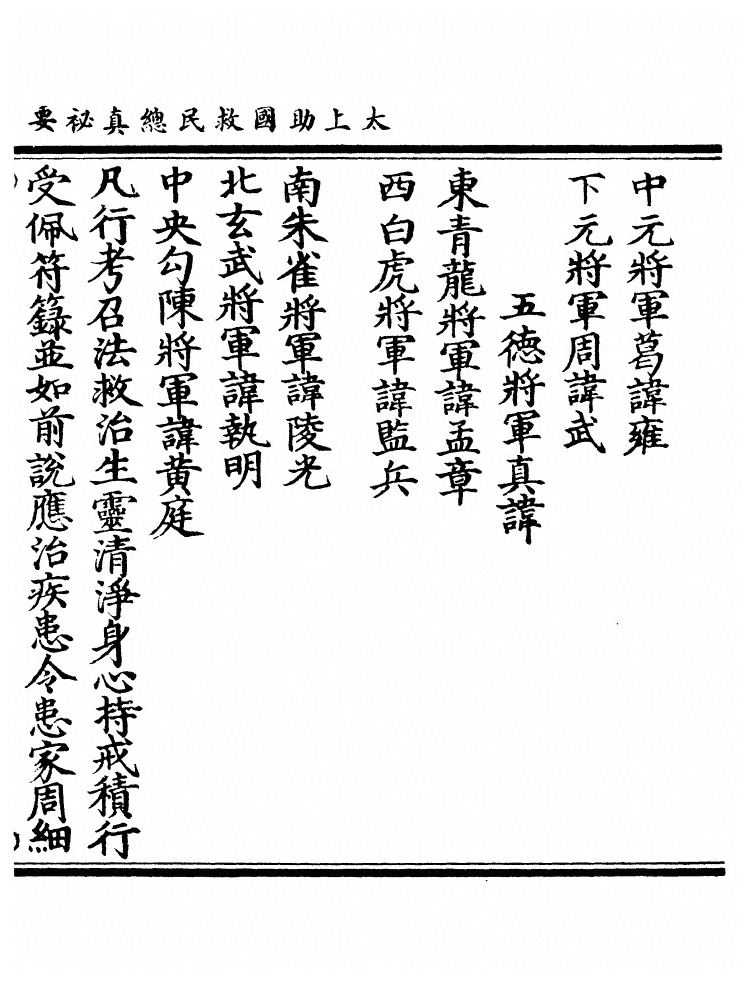 太上助國救民總真祕要
中元將軍葛諱雍
下元將軍周諱武
五德將軍真諱
東青龍將軍諱孟章
西白虎將軍諱監兵
南朱雀將軍諱陵光
北玄武將軍諱執明
中央勾陳將軍諱黄庭
凡行考召法救治生靈清淨身心持戒積行
受佩符籙並如前說應治疾患令患家周細